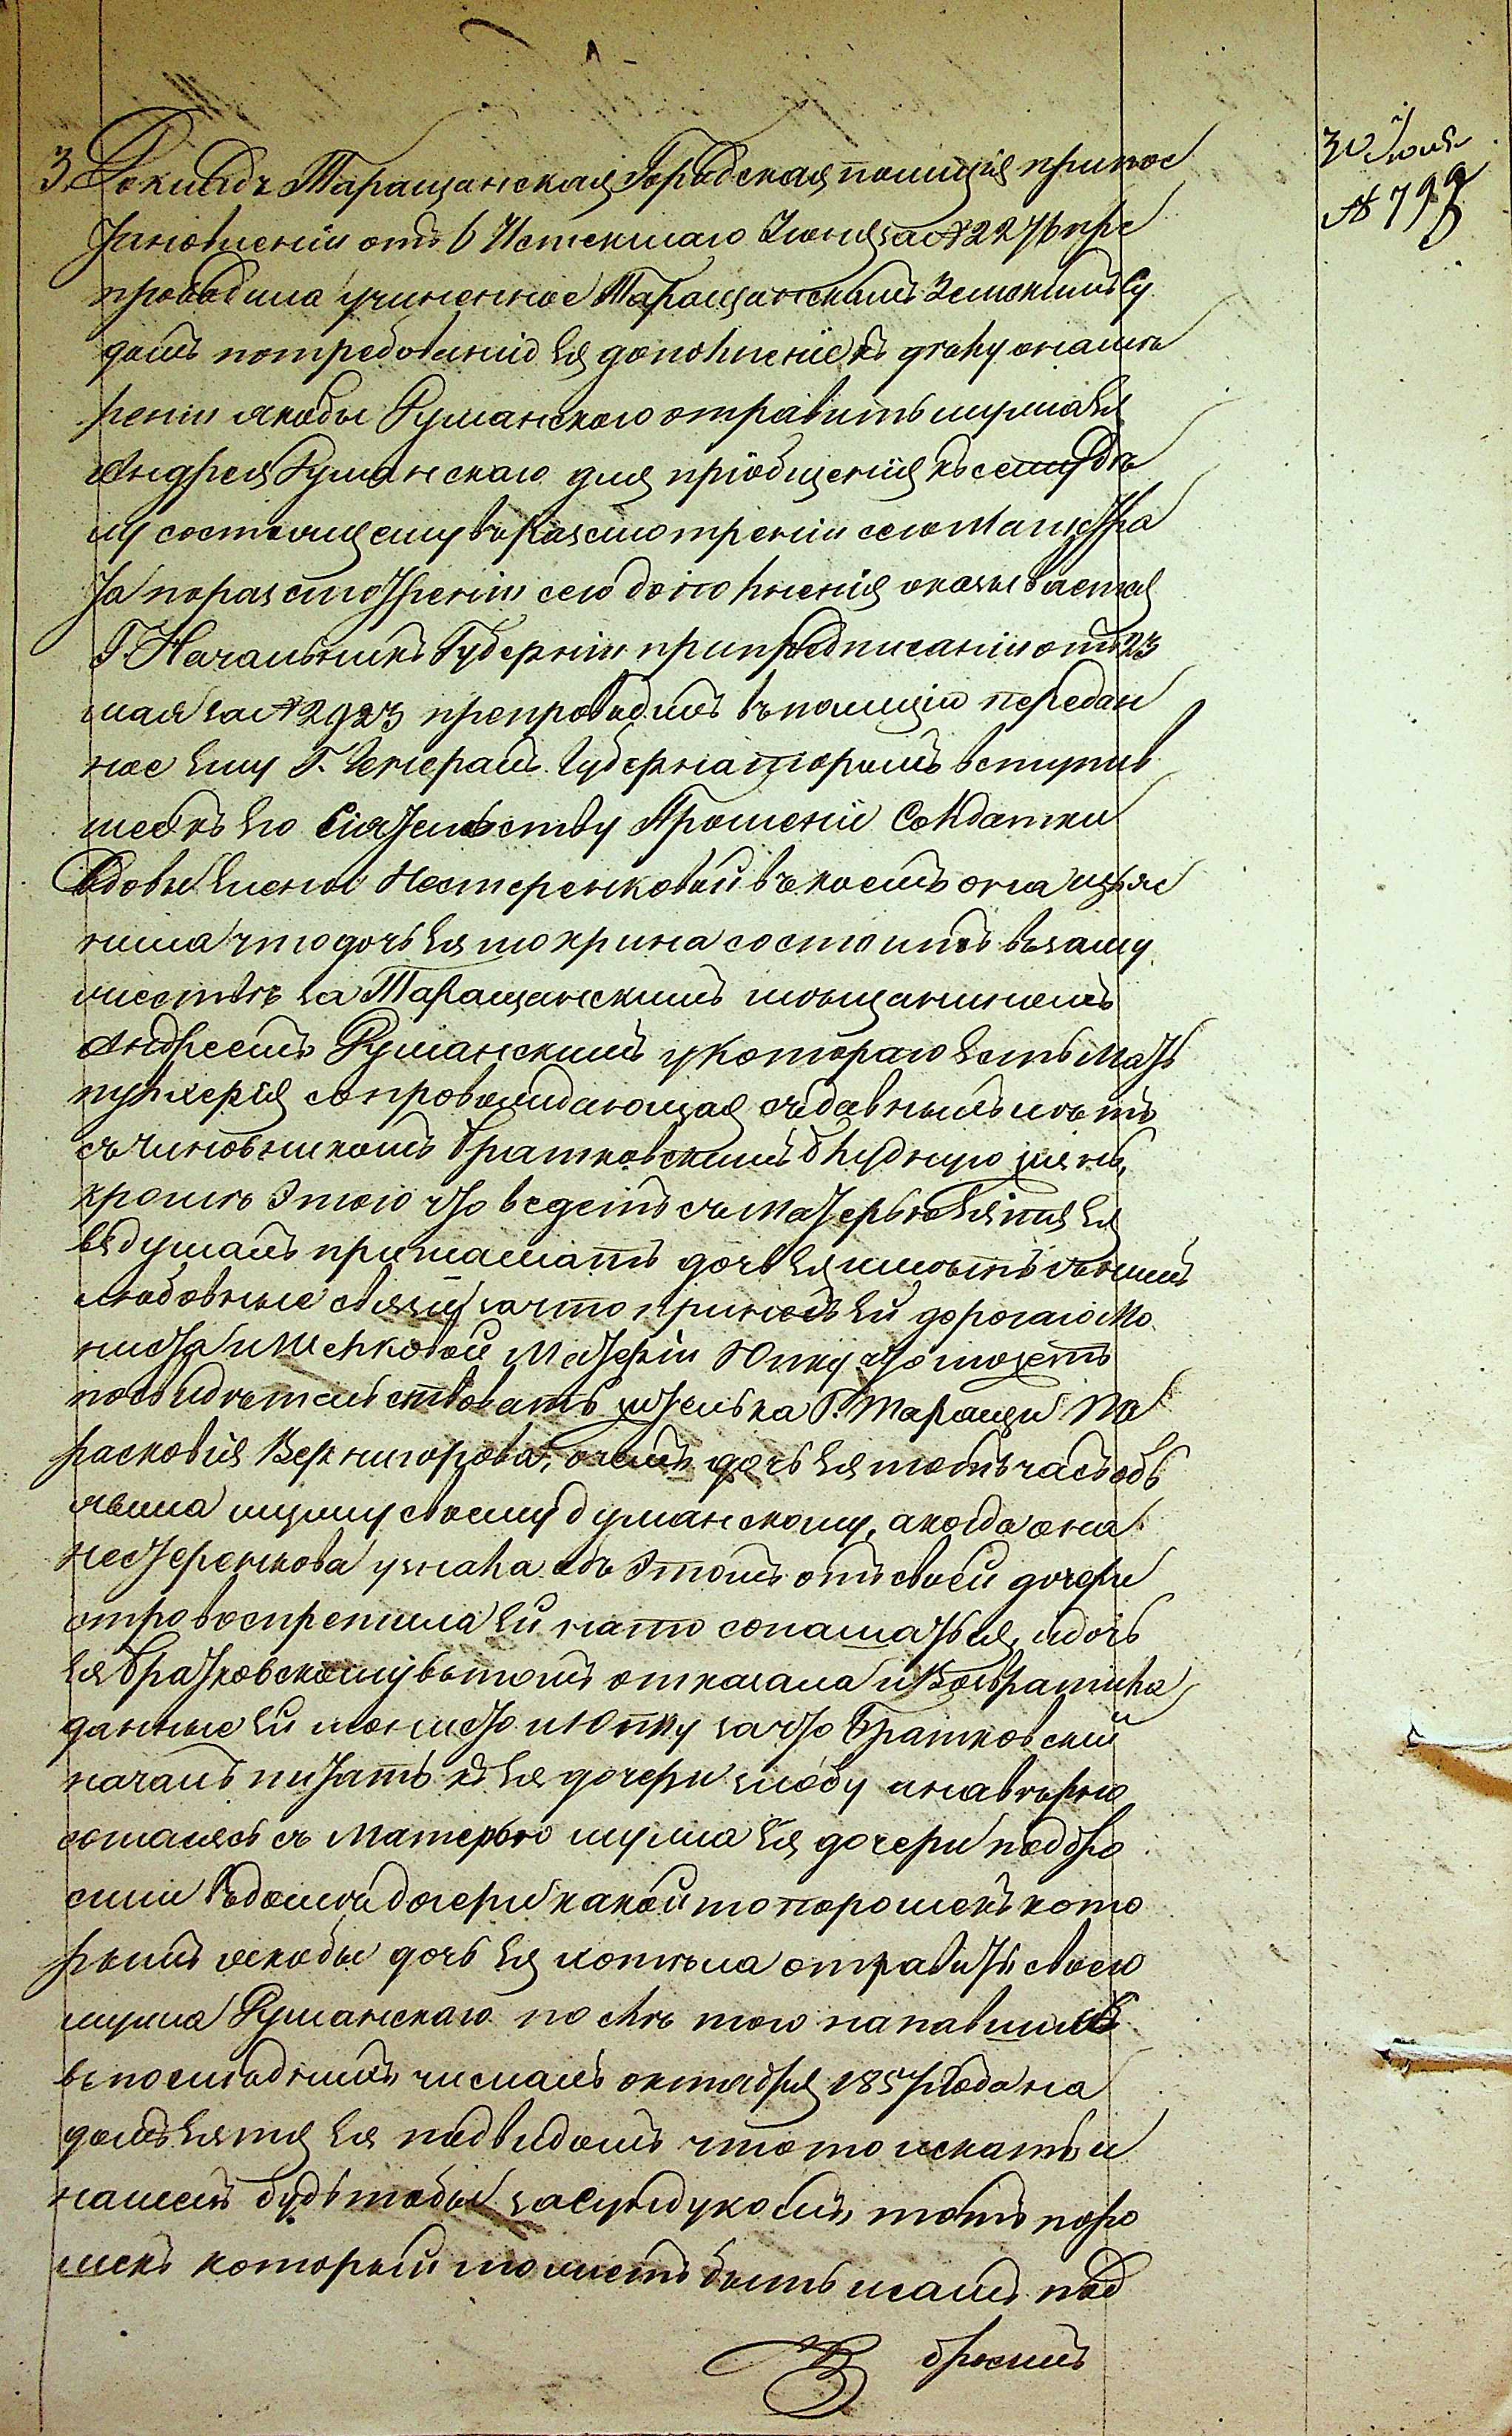 30 Июля
№ 799
3. Докладъ Таращанская Городская полиція при пос
тановленіи отъ 6 Истекшаго Іюня за № 2276 пре
проводила учиненное Таращанскимъ Земскимъ Су
домъ по требованію Ея дополненіе къ делу о намѣ
реніи якобы Гуманского отравить мужа Ея
Андрея Гуманскаго для пріобщенія къ сему дѣ
лу состоящему въ Разсмотреніи сего Магистра
та по разсмотреніи сего дополненія оказывается
Г. Начальникъ Губерніи при предписаніи отъ 23
мая за № 2923 препроводилъ въ полицію передан
ное Ему Г. Генералъ Губернаторомъ вступив
шее къ Его Сіятельству Прошеніе Солдатки
Вдовы Елены Нестеренковой въ коемъ она изъяс
нила что дочь Ея Мокрина состоитъ въ заму
жествѣ за Таращанскимъ мѣщаниномъ
Андреемъ Гуманскимъ у котораго Есть Мать
Пульхерія сопровождающая съ давнихъ лѣтъ
съ чиновникомъ Братковскимъ блудную жизнь,
кромѣ Этого что ведетъ съ Матерью Зятя Ея
вздумалъ приглашать дочь Ея имѣть съ нимъ
любовные связи за что принесъ Ей дорогаго мо
ниста и Шелковой Матеріи Юпку что можетъ
посвидѣтельствовать жителька Г. Таращи Па
расковія Вернигорова, о чемъ дочь Ея тотъ часъ объ
явила мужу своему Гуманскому, а когда она
Нестеренкова узнала объ Этомъ отъ своей дочери
строго воспретила Ей на то соглашаться, и дочь
Ея Братковскому въ томъ отказала и Возвратила
данные Ей монисто и Юпку за что Братковскій
началъ питать къ Ея дочери злобу и навѣрно
согласясь съ Матерью мужа Ея дочери подбро
сили въ домѣ дочери какой то порошекъ кото
рымъ якобы дочь Ея хотѣла отравить своего
мужа Гуманскаго послѣ того напавшись
въ последнихъ числахъ октября 1857 Года на
домъ Зятя Ея подъ видомъ что то искать и
нашелъ будьтобы за сундукомъ, тотъ поро
шекъ который можетъ быть и самъ под
бросилъ